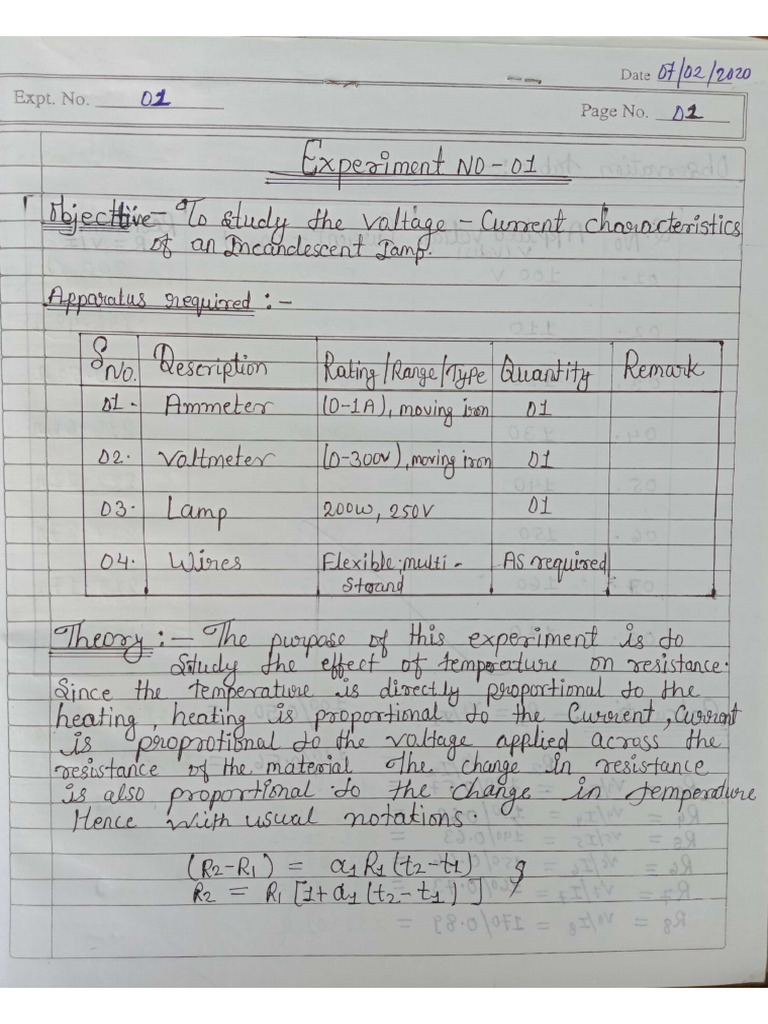 Date 07/02/2020
Expt. No. 01
Page No. 01
Experiment NO-01
Objective- To study the voltage - Current characteristics
of an Incandescent Lamp.
Apparatus required :-
S No. Description Rating/Range/Type Quantity Remark
01. Ammeter (0-1A), moving iron 01
02. Voltmeter (0-300V), moving iron 01
03. Lamp 200W, 250V 01
04. Wires Flexible; multi- As required
Strand
Theory :- The purpose of this experiment is to
study the effect of temperature on resistance.
Since the temperature is directly proportional to the
heating, heating is proportional to the Current, Current
is proprotional to the voltage applied across the
resistance of the material. The change in resistance
is also proportional to the change in temperature
Hence with usual notations.
(R2-R1) = α1R1(t2-t1)
R2 = R1 [1+α1(t2-t1)]